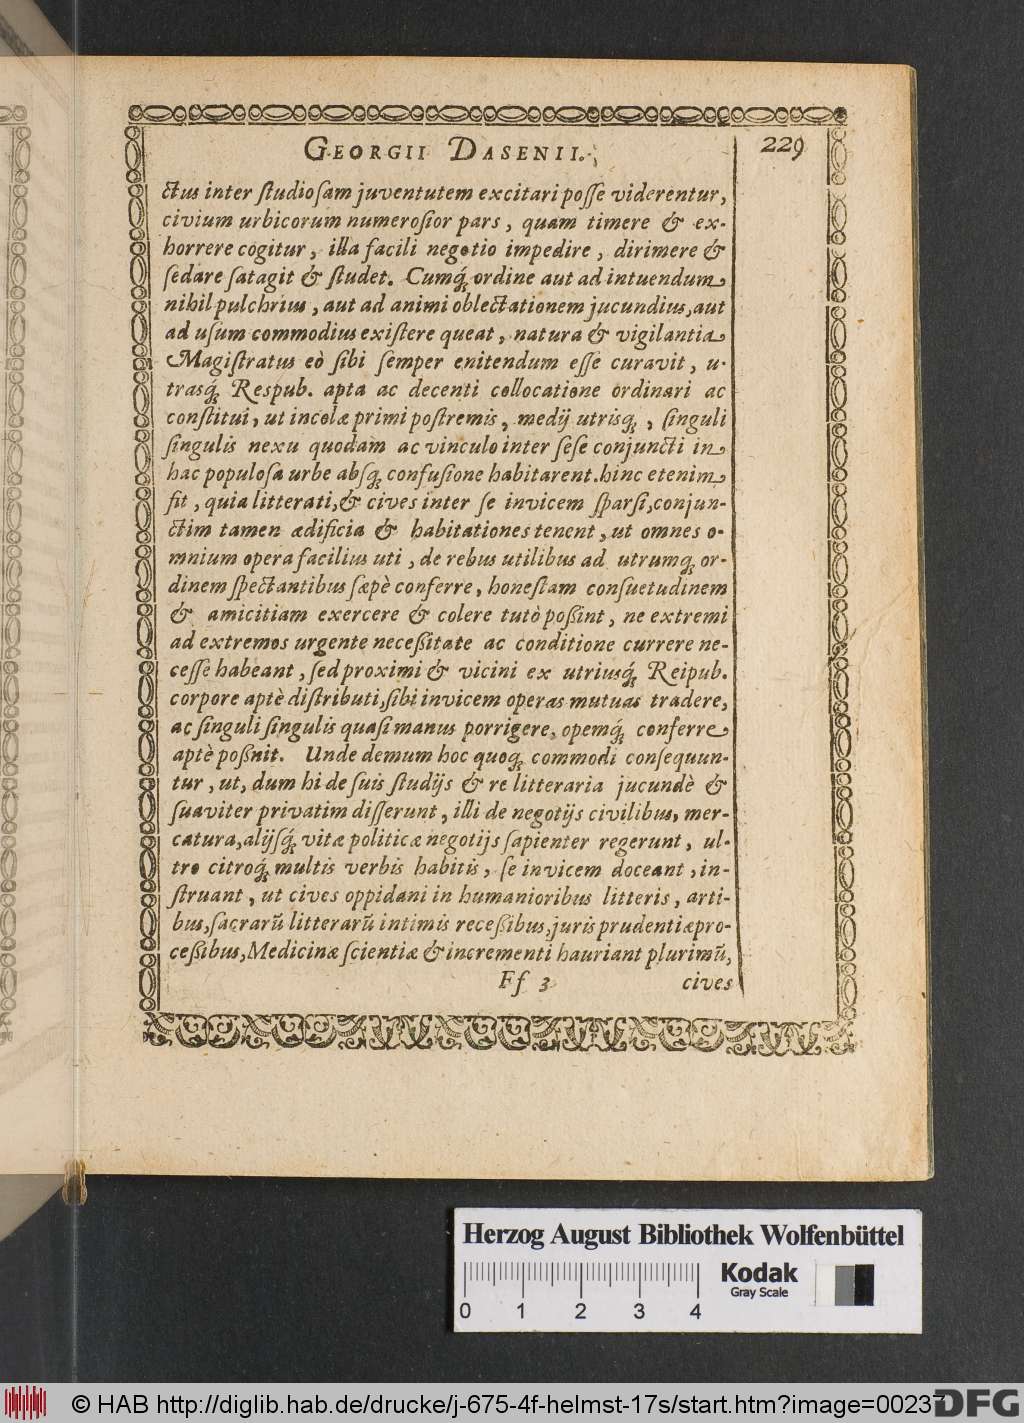 GEORGII DASENII. 229
ctus inter ſtudioſam juventutem excitari poſſe viderentur,
civium urbicorum numeroſior pars, quam timere & ex-
horrere cogitur, illa facili negotio impedire, dirimere &
ſedare ſatagit & ſtudet. Cumq́ꝫ ordine aut ad intuendum
nihil pulchrius, aut ad animi oblectationem jucundius, aut
ad uſum commodius exiſtere queat, natura & vigilantia
Magiſtratus eò ſibi ſemper enitendum eſſe curavit, u-
trasq́ꝫ Respub. apta ac decenti collocatione ordinari ac
conſtitui, ut incolæ primi poſtremis, medij utrisqꝫ, ſinguli
ſingulis nexu quodam ac vinculo inter ſeſe conjuncti in
hac populoſa urbe abſqꝫ confuſione habitarent. hinc etenim
fit, quia litterati, & cives inter ſe invicem ſparſi, conjun-
ctim tamen ædificia & habitationes tenent, ut omnes o-
mnium opera facilius uti, de rebus utilibus ad utrumqꝫ or-
dinem ſpectantibus ſæpè conferre, honeſtam conſuetudinem
& amicitiam exercere & colere tutò poßint, ne extremi
ad extremos urgente neceßitate ac conditione currere ne-
ceſſe habeant, ſed proximi & vicini ex utriusq́ꝫ Reipub.
corpore aptè diſtributi, ſibi invicem operas mutuas tradere,
ac ſinguli ſingulis quaſi manus porrigere, opemq́ꝫ conferre
aptè poßnit. Unde demum hoc quoqꝫ commodi conſequun-
tur, ut, dum hi de ſuis ſtudijs & re litteraria jucundè &
ſuaviter privatim diſſerunt, illi de negotijs civilibus, mer-
catura, alijſq́ꝫ vitæ politicæ negotijs ſapienter regerunt, ul-
tro citroq́ꝫ multis verbis habitis, ſe invicem doceant, in-
ſtruant, ut cives oppidani in humanioribus litteris, arti-
bus, ſacrarũ litterarũ intimis receßibus, juris prudentiæ pro-
ceßibus, Medicinæ ſcientiæ & incrementi hauriant plurimũ,
Ff 3 cives
Herzog August Bibliothek Wolfenbüttel
Kodak
Gray Scale
0 1 2 3 4
© HAB http://diglib.hab.de/drucke/j-675-4f-helmst-17s/start.htm?image=00237
DFG